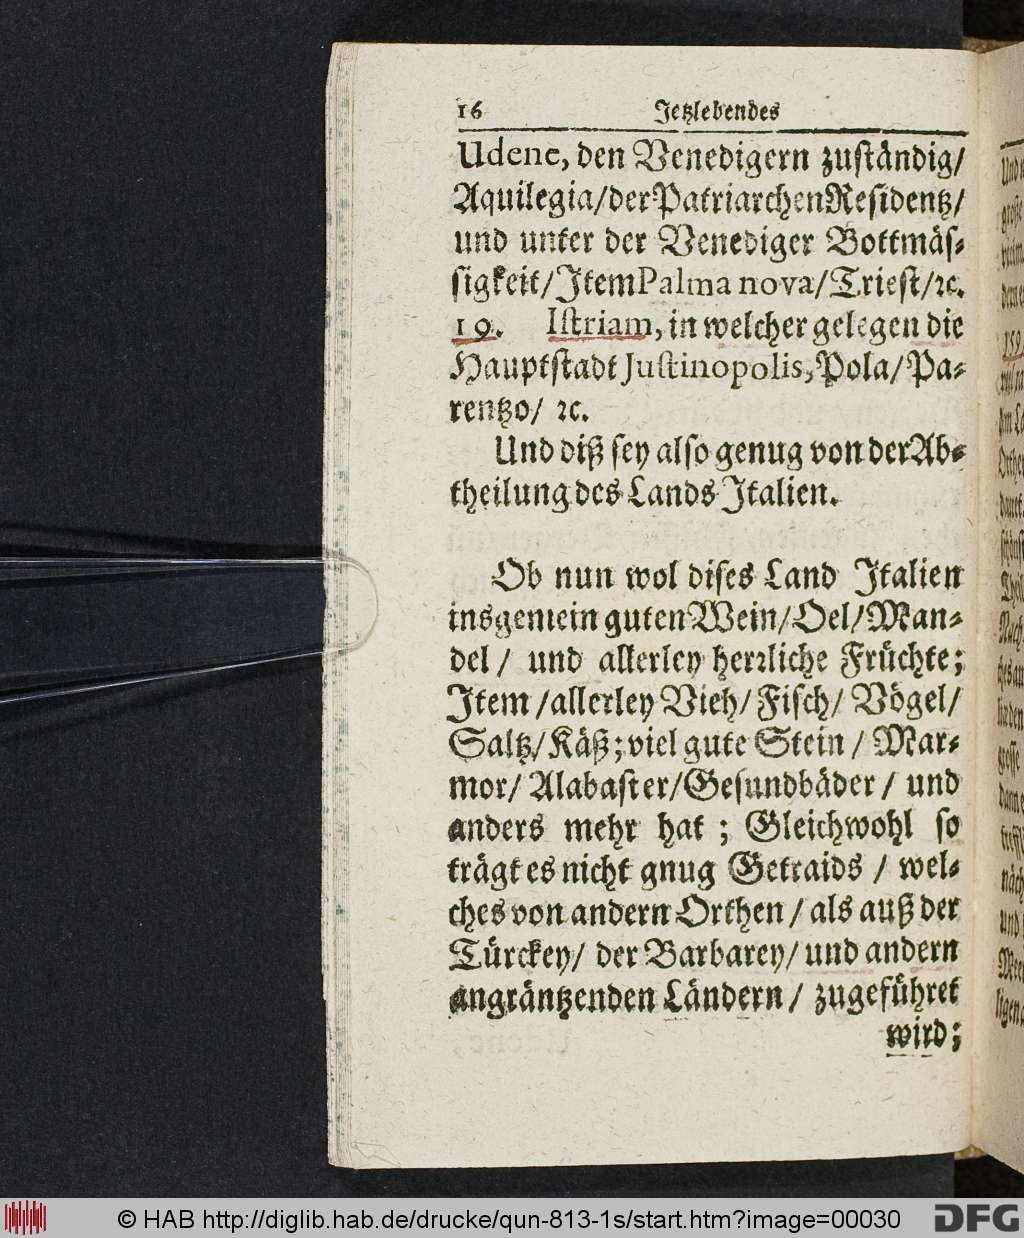 16 Jetzlebendes
Udene, den Venedigern zuständig/
Aquilegia/der Patriarchen Residentz/
und unter der Venediger Bottmäs-
sigkeit/Item Palma nova/Triest/ꝛc.
19. Istriam, in welcher gelegen die
Hauptstadt Justinopolis, Pola/Pa-
rentzo/ ꝛc.
Und diß sey also genug von der Ab-
theilung des Lands Italien.
Ob nun wol dises Land Italien
insgemein guten Wein/Oel/Man-
del/ und allerley herꝛliche Früchte;
Item/allerley Vieh/Fisch/ Vögel/
Saltz/Käß; viel gute Stein/ Mar-
mor/ Alabaster/Gesundbäder/ und
anders mehr hat; Gleichwohl so
trägt es nicht gnug Getraids/ wel-
ches von andern Orthen/ als auß der
Türckey/ der Barbarey/ und andern
angräntzenden Ländern/ zugeführet
wird;
© HAB http://diglib.hab.de/drucke/qun-813-1s/start.htm?image=00030
DFG